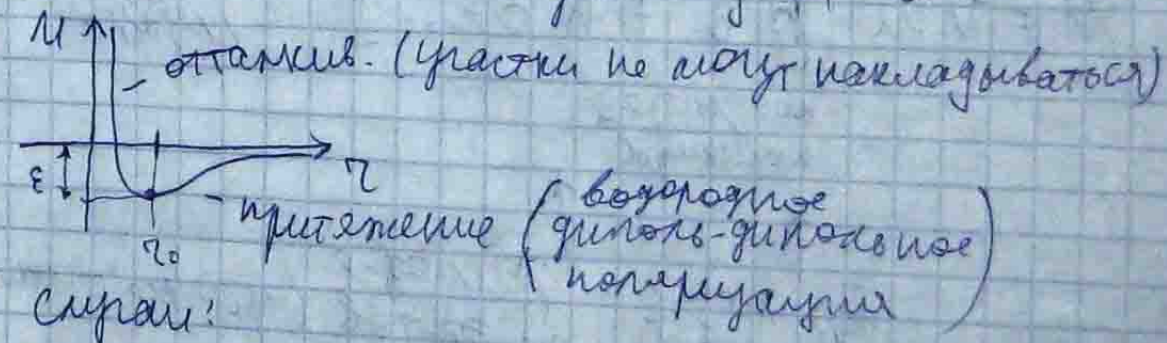 U
отталкив. (участки не могут накладываться)
ε
r
r₀
притяжение (водородное
диполь-дипольное
поляризация)
Случаи: